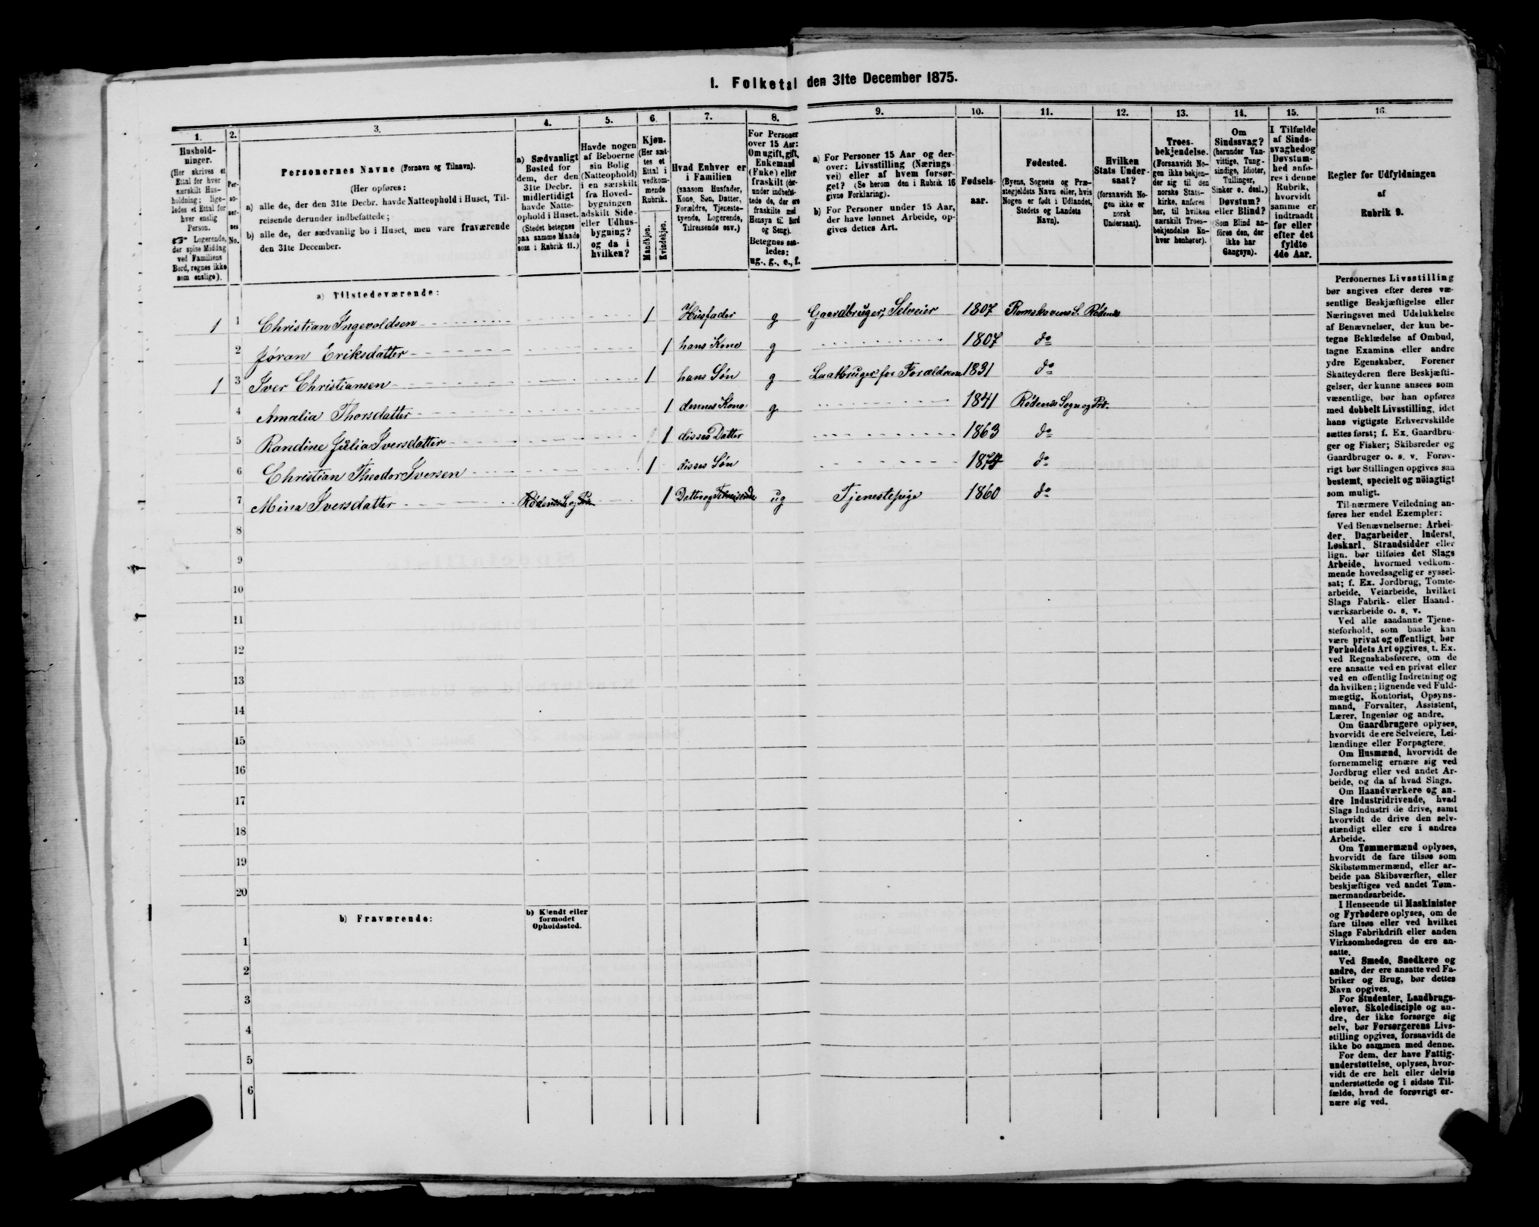 1. Folketal den 31te December 1875.
1.
Hushold-
ninger.
(Her skrives et
Ettal for hver
særskilt Hus-
holdning; lige-
ledes et Ettal for
hver enslig
Person.
☞ Logerende,
der spise Middag
ved Familiens
Bord, regnes ikke
som enslige).
2.
Per-
so-
ner-
nes
No.
3.
Personernes Navne (Fornavn og Tilnavn).
(Her opføres:
a) alle de, der den 31te Decbr. havde Natteophold i Huset, Til-
reisende derunder indbefattede;
b) alle de, der sædvanlig bo i Huset, men vare fraværende
den 31te December.
4.
a) Sædvanligt
Bosted for
dem, der den
31te Decbr.
midlertidigt
havde Natte-
ophold i Huset.
(Stedet betegnes
paa samme Maade
som i Rubrik 11.)
5.
Havde nogen
af Beboerne
sin Bolig
(Natteophold)
i en særskilt
fra Hoved-
bygningen
adskilt Side-
eller Udhus-
bygning?
og da i
hvilken?
6.
Kjøn.
(Her sæt-
tes et
Ettal i
vedkom-
mende
Rubrik.
Mandkjøn.
Kvindekjøn.
7.
Hvad Enhver er
i Familien
(saasom Husfader,
Kone, Søn, Datter,
Forældre, Tjeneste-
tyende, Logerende,
Tilreisende osv.)
8.
For Personer
over 15 Aar:
Om ugift, gift,
Enkemand
(Enke) eller
fraskilt (der-
under indbefat-
tede de, der ere
fraskilte med
Hensyn til Bord
og Seng).
Betegnes saa-
ledes:
ug., g., e., f.
9.
a) For Personer 15 Aar og der-
over: Livsstilling (Nærings-
vei) eller af hvem forsør-
get? (Se herom den i Rubrik 16
givne Forklaring).
b) For Personer under 15 Aar,
der have lønnet Arbeide, op-
gives dettes Art.
10.
Fødsels-
aar.
11.
Fødested.
(Byens, Sognets og Præ-
stegjeldets Navn eller, hvis
Nogen er født i Udlandet,
Stedets og Landets
Navn).
12.
Hvilken
Stats Under-
saat?
(forsaavidt No-
gen ikke er
norsk
Undersaat).
13.
Troes-
bekjendelse.
(Forsaavidt No-
gen ikke bekjen-
der sig til den
norske Stats-
kirke, anføres
her, til hvilken
særskilt Troes-
bekjendelse En-
hver henhører).
14.
Om
Sindssvag?
(herunder Van-
vittige, Tung-
sindige, Idioter,
Tullinger,
Sinker o. desl.)
Døvstum?
eller Blind?
(Som Blind an-
føres den, der
ikke har
Gangsyn).
15.
I Tilfælde
af Sinds-
svaghed og
Døvstum-
hed anfø-
res i denne
Rubrik,
hvorvidt
samme er
indtraadt
før eller
efter det
fyldte
4de Aar.
16.
Regler for Udfyldningen
af
Rubrik 9.
a) Tilstedeværende:
1 1 Christian Ingevoldsen 1 Husfader g Gaardbruger, Selveier 1807 Rømskovens S. Rødenes
2 Jøran Eriksdatter 1 hans Kone g 1807 do
1 3 Iver Christiansen 1 hans Søn g for Forældrene 1831 do
4 Amalia Thorsdatter 1 dennes Kone g 1841 Rødenæs Sogn og Pr.
5 Randine Julia Iversdatter 1 disses Datter 1863 do
6 Christian Theodor Iversen 1 disses Søn do
7 Mina Iversdatter 1 ug Tjenestepige 1860 do
8
9
10
11
12
13
14
15
16
17
18
19
20
b) Fraværende:
b) Kjendt eller
formodet
Opholdssted.
1
2
3
4
5
6
Personernes Livsstilling
bør angives efter deres væ-
sentlige Beskjæftigelse eller
Næringsvei med Udelukkelse
af Benævnelser, der kun be-
tegne Beklædelse af Ombud,
tagne Examina eller andre
ydre Egenskaber. Forener
Skatteyderen flere Beskjæfti-
gelser, der kunne ansees som
væsentlige, bør han opgives
med dobbelt Livsstilling, idet
hans vigtigste Erhvervskilde
sættes først; f. Ex. Gaardbru-
ger og Fisker; Skibsreder og
Gaardbruger o. s. v. Forøv-
rigt bør Stillingen opgives saa
bestemt, specielt og nøiagtigt
som muligt.
Til nærmere Veiledning an-
føres her endel Exempler:
Ved Benævnelserne: Arbei-
der, Dagarbeider, Inderst,
Løskarl, Strandsidder eller
lign. bør tilføies det Slags
Arbeide, hvormed vedkom-
mende hovedsagelig er syssel-
sat; f. Ex. Jordbrug, Tomte-
arbeide, Veiarbeide, hvilket
Slags Fabrik- eller Haand-
værksarbeide o. s. v.
Ved alle saadanne Tjene-
steforhold, som baade kan
være privat og offentligt, bør
Forholdets Art opgives, t. Ex.
ved Regnskabsførere, om de
ere ansatte ved en privat eller
ved en offentlig Indretning og
da hvilken; lignende ved Fuld-
mægtig, Kontorist, Opsyns-
mand, Forvalter, Assistent,
Lærer, Ingeniør og andre.
Om Gaardbrugere oplyses,
hvorvidt de ere Selveiere, Lei-
lændinge eller Forpagtere.
Om Husmænd, hvorvidt de
fornemmelig ernære sig ved
Jordbrug eller ved andet Ar-
beide, og da af hvad Slags.
Om Haandværkere og an-
dre Industridrivende, hvad
Slags Industri de drive, samt
hvorvidt de drive den selv-
stændigt eller ere i andres
Arbeide.
Om Tømmermænd oplyses,
hvorvidt de fare tilsøs som
Skibstømmermænd, eller ar-
beide paa Skibsværfter, eller
beskjæftiges ved andet Tøm-
mermandsarbeide.
I Henseende til Maskinister
og Fyrbødere oplyses, om de
fare tilsøs eller ved hvilket
Slags Fabrikdrift eller anden
Virksomhedsgren de ere an-
satte.
Ved Smede, Snedkere og
andre, der ere ansatte ved Fa-
briker og Brug, bør dettes
Navn opgives.
For Studenter, Landbrugs-
elever, Skoledisciple og an-
dre, der ikke forsørge sig
selv, bør Forsørgerens Livs-
stilling opgives, forsaavidt de
ikke bo sammen med denne.
For dem, der have Fattig-
understøttelse, oplyses, hvor-
vidt de ere helt eller delvis
understøttede og i sidste Til-
fælde, hvad de forøvrigt er-
nære sig ved.